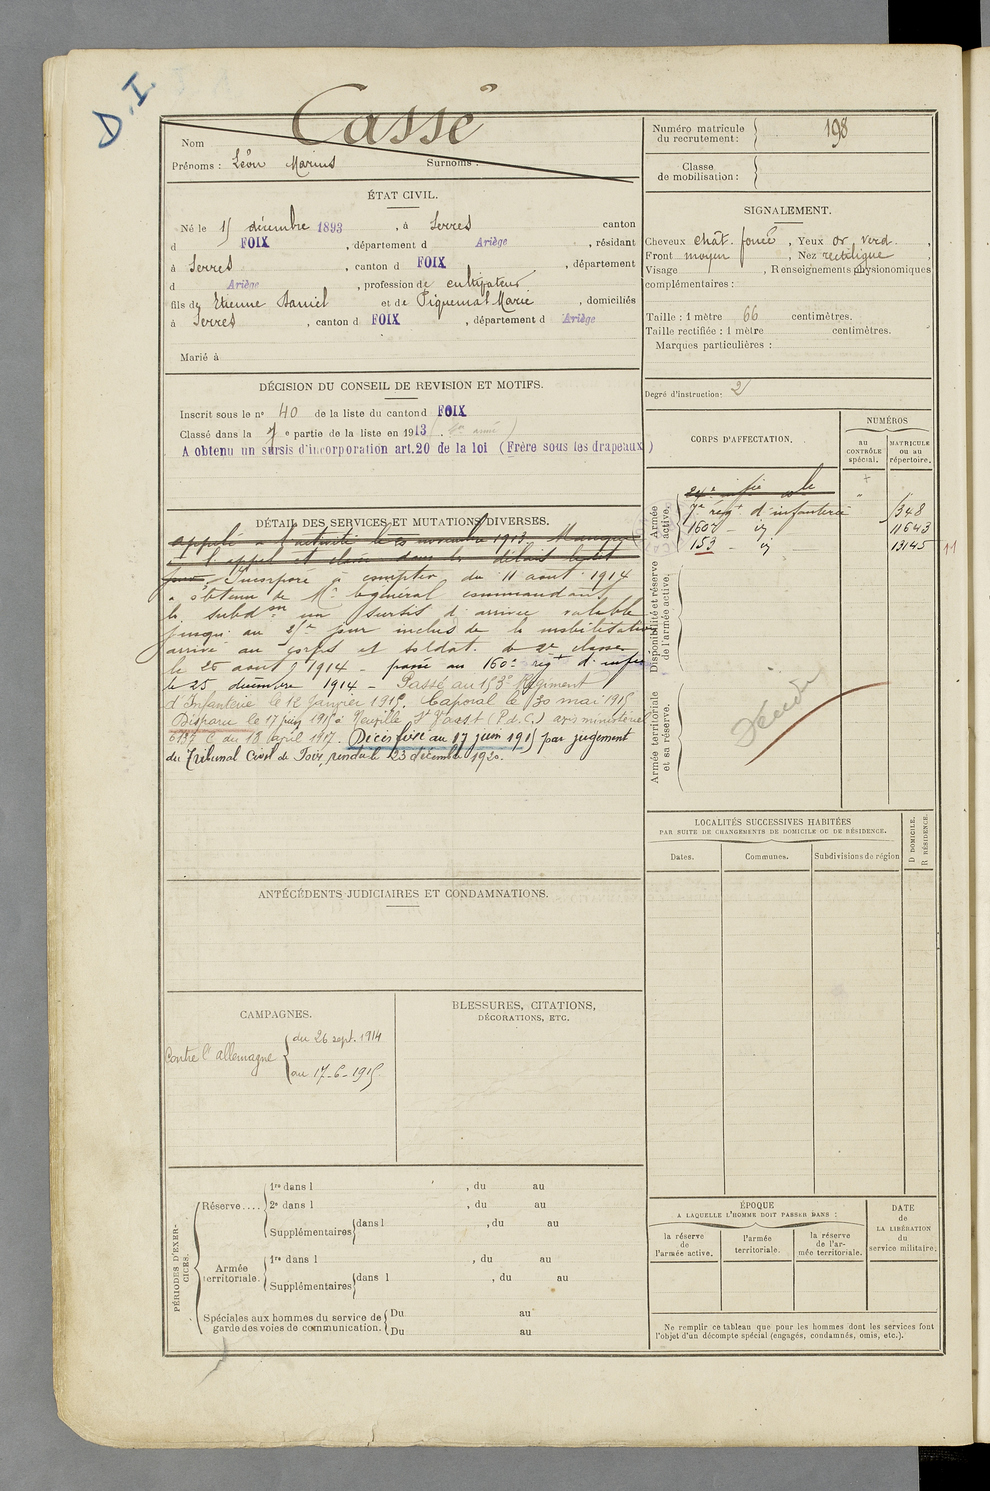 D.I.
Cassé
Nom
Prénoms : Léon Marius Surnoms :
Numéro matricule du recrutement : 198
Classe de mobilisation :
ÉTAT CIVIL.
Né le 15 décembre 1893, à Serres canton
d FOIX, département d Ariège, résidant
à Serres, canton d FOIX, département
d Ariège, profession de cultivateur
fils de Etienne Daniel et de Piquemal Marie, domiciliés
à Serres, canton d FOIX, département d Ariège
Marié à
SIGNALEMENT.
Cheveux chât. foncé, Yeux or. verd.,
Front moyen, Nez rectiligne,
Visage , Renseignements physionomiques
complémentaires :
Taille : 1 mètre 66 centimètres.
Taille rectifiée : 1 mètre centimètres.
Marques particulières :
DÉCISION DU CONSEIL DE REVISION ET MOTIFS.
Inscrit sous le nº 40 de la liste du canton d FOIX
Classé dans la 7 e partie de la liste en 1913
A obtenu un sursis d'incorporation art.20 de la loi (Frère sous les drapeaux)
Degré d'instruction : 2
CORPS D'AFFECTATION.
NUMÉROS
au CONTRÔLE spécial.
MATRICULE ou au répertoire.
Armée active.
7e régt d'infanterie " 348
160e - id 11643
153 - id 13145
11
Disponibilité et réserve de l'armée active.
Armée territoriale et sa réserve.
DÉTAIL DES SERVICES ET MUTATIONS DIVERSES.
appelé à l'activité le 20 novembre 1913. Manque
à l'appel et classé dans les
Incorporé à compter du 11 août 1914
a obtenu de Mr le général commandant
la subdon un sursis d'arrivée valable
jusqu'au 25e jour inclus de la mobilisation
arrivé au corps et soldat de 2e classe
le 26 août 1914 - passé au 160e régt d'infie
le 25 décembre 1914 - Passé au 153e Régiment
d'Infanterie le 12 Janvier 1915. Caporal le 30 mai 1915
Disparu le 17 juin 1915 à Neuville St Vaast (P.d.C.) avis ministériel
du 18 april 1917. Décès fixé au 17 juin 1915 par jugement
du Tribunal Civil de Foix, rendu le 23 décembre 1920.
LOCALITÉS SUCCESSIVES HABITÉES
PAR SUITE DE CHANGEMENTS DE DOMICILE OU DE RÉSIDENCE.
Dates.
Communes.
Subdivisions de région
D DOMICILE.
R RÉSIDENCE.
ANTÉCÉDENTS JUDICIAIRES ET CONDAMNATIONS.
CAMPAGNES.
Contre l'allemagne
du 26 sept. 1914
au 17-6-1915.
BLESSURES, CITATIONS,
DÉCORATIONS, ETC.
PÉRIODES D'EXERCICES.
Réserve....
1re dans l , du au
2e dans l , du au
Supplémentaires dans l , du au
Armée territoriale.
1re dans l , du au
Supplémentaires dans l , du au
Spéciales aux hommes du service de garde des voies de communication.
Du au
Du au
ÉPOQUE
A LAQUELLE L'HOMME DOIT PASSER DANS :
la réserve de l'armée active.
l'armée territoriale.
la réserve de l'armée territoriale.
DATE de LA LIBÉRATION du service militaire.
Ne remplir ce tableau que pour les hommes dont les services font
l'objet d'un décompte spécial (engagés, condamnés, omis, etc.).